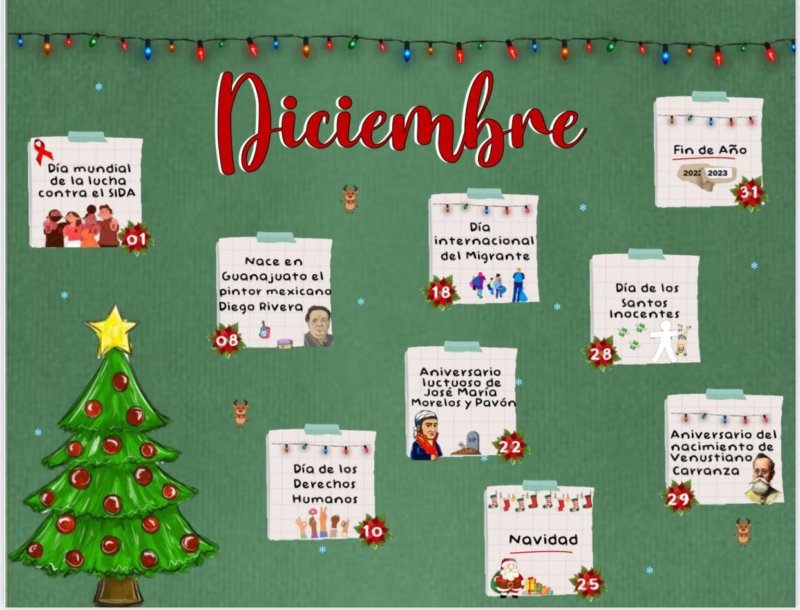 Diciembre
Día mundial
de la lucha
contra el SIDA
01
Nace en
Guanajuato el
pintor mexicano
Diego Rivera
08
Día de los
Derechos
Humanos
10
Día
internacional
del Migrante
18
Aniversario
luctuoso de
José María
Morelos y Pavón
22
Navidad
25
Día de los
Santos
Inocentes
28
Aniversario del
nacimiento de
Venustiano
Carranza
29
Fin de Año
2022 2023
31